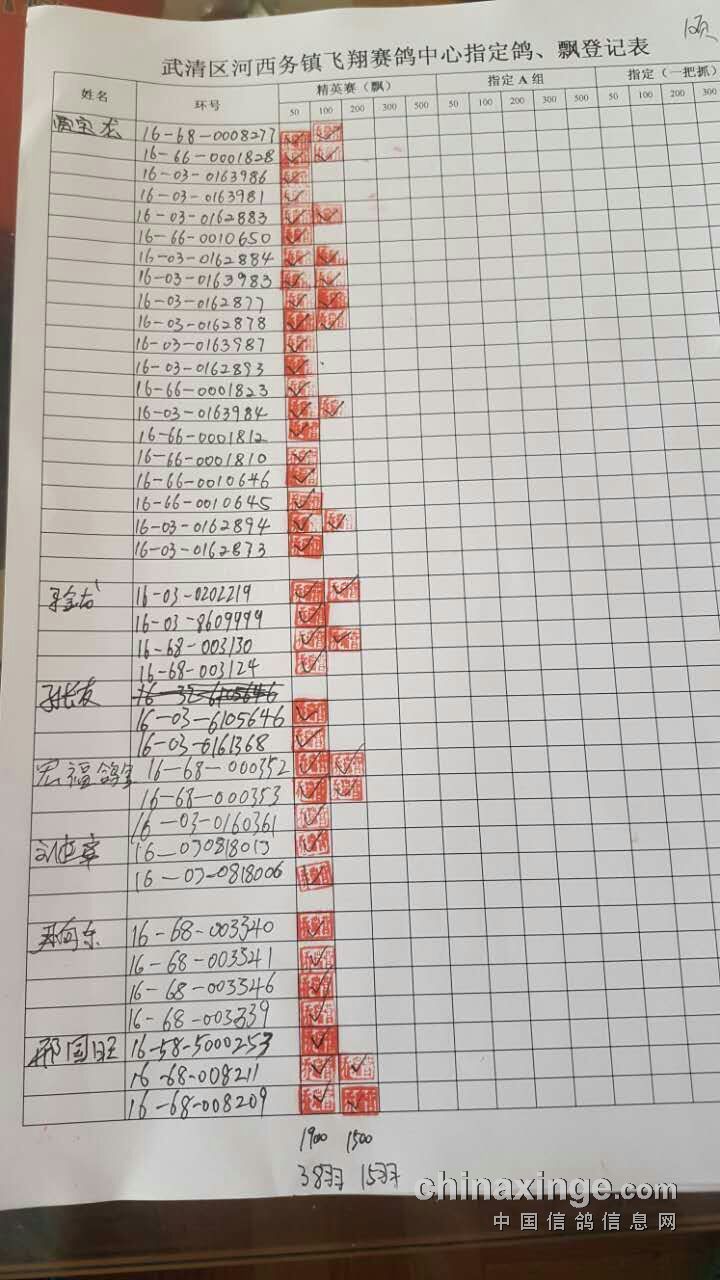 1页
武清区河西务镇飞翔赛鸽中心指定鸽、飘登记表
姓名 环号 精英赛（飘） 指定A组 指定（一把抓）
50 100 200 300 500 50 100 200 300 500 50 100 200 300
16-68-0008277
16-66-0001828
16-03-0163986
16-03-0163981
16-03-0162883
16-66-0010650
16-03-0162884
16-03-0163983
16-03-0162877
16-03-0162878
16-03-0163987
16-03-0162893
16-66-0001823
16-03-0163984
16-66-0001812
16-66-0001810
16-66-0010646
16-66-0010645
16-03-0162894
16-03-0162873
16-03-0202219
16-03-8609999
16-68-003130
16-68-003124
16-03-6105646
16-03-0161368
宏福鸽 16-68-000352
16-68-000353
16-03-0160361
16-030818013
16-03-0818006
16-68-003340
16-68-003341
16-68-003346
16-68-003339
邢国旺 16-58-5000253
16-68-008211
16-68-008209
1900 1500
38羽 15羽
chinaxinge.com
中国信鸽信息网